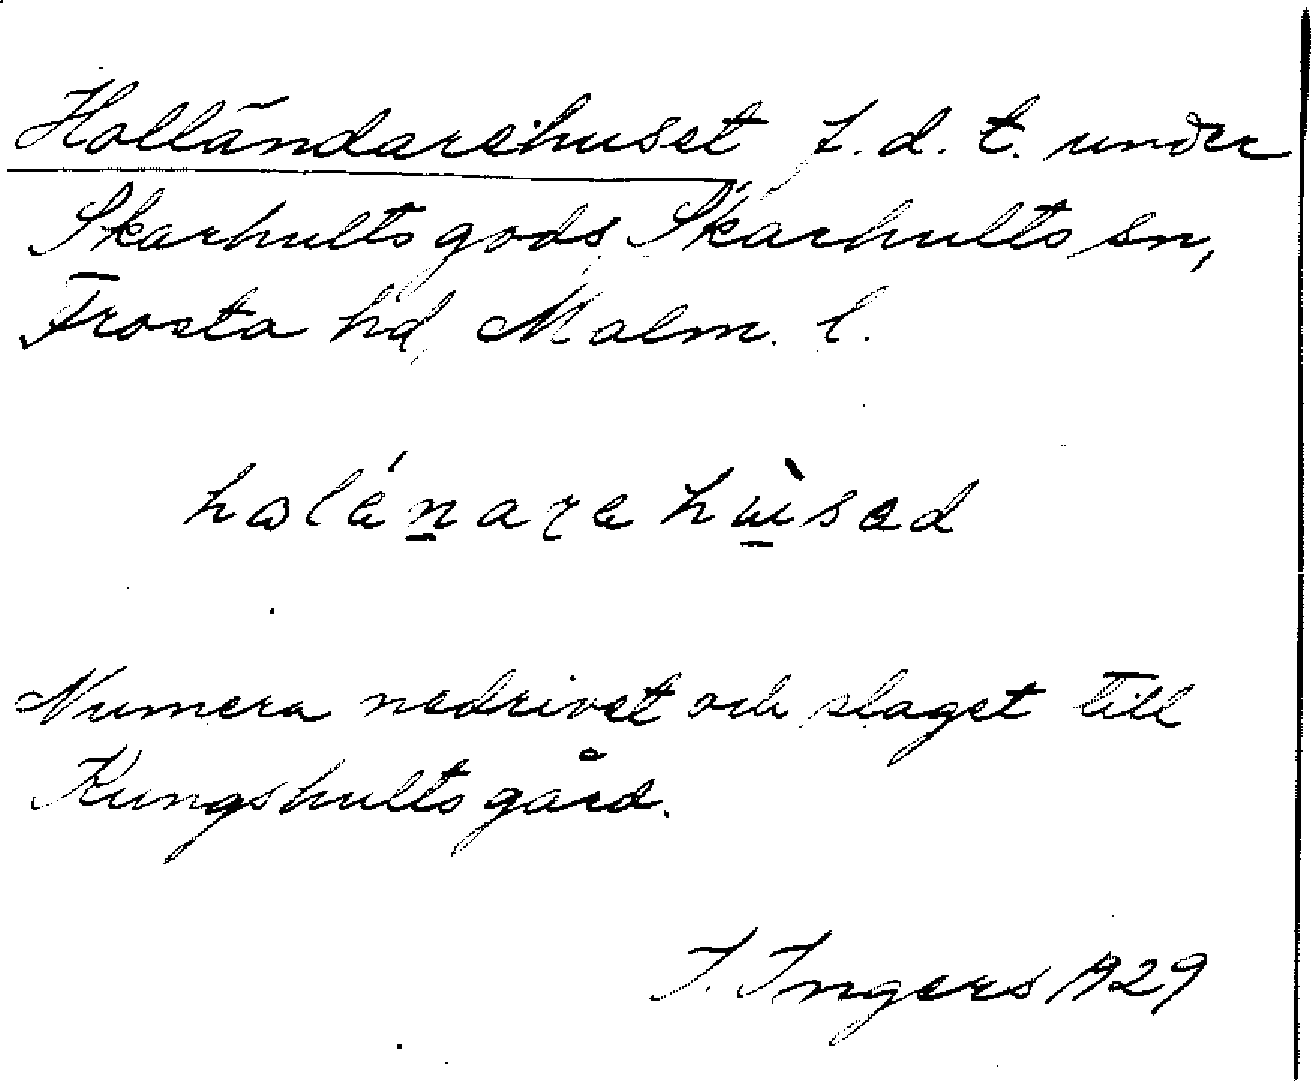 Holländarehuset f.d. t. under
Skarhults gods, Skarhults sn,
Frosta hd, Malm. l.
Numera nedrivet och slaget till
Kungshultsgård.
I. Ingers 1929